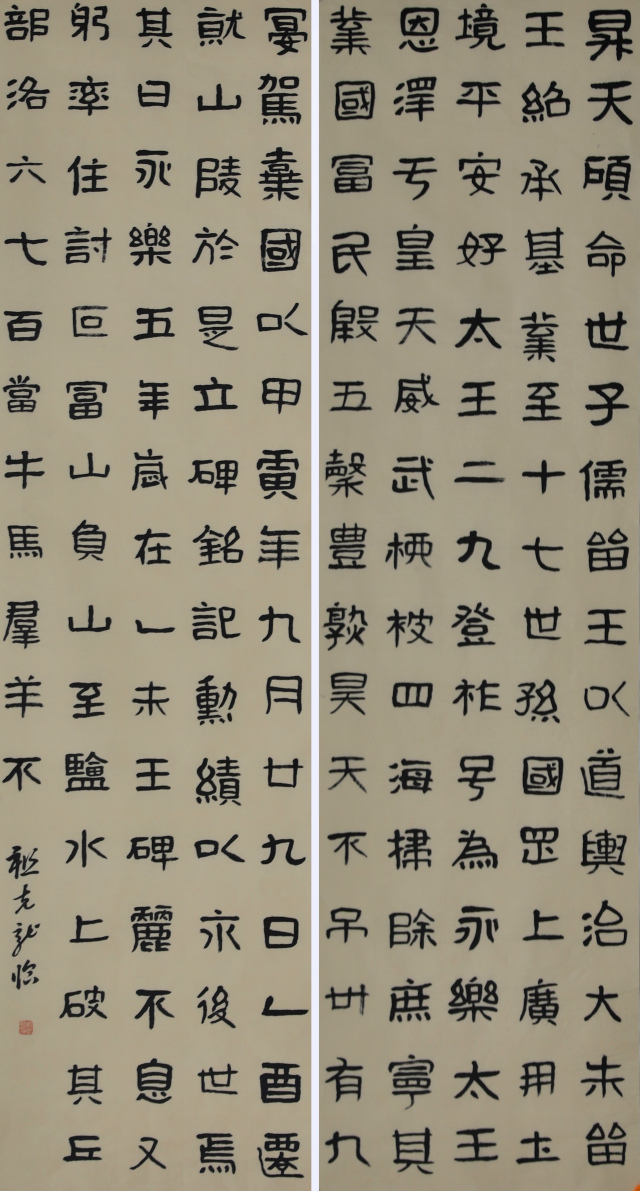 昇天碩命世子儒留王以道輿治大朱留
王紹承基業至十七世孫國罡上廣開土
境平安好太王二九登祚号為永樂太王
恩澤亏皇天威武柳被四海掃除庶寧其
業國富民殷五穀豊熟昊天不弔卅有九
宴駕棄國以甲寅年九月廿九日乙酉遷
就山陵於是立碑銘記勳績以永後世焉
其日永樂五年歲在乙未王碑麗不息又
躬率住討叵富山負山至鹽水上破其丘
部洛六七百當牛馬羣羊不
克龍臨